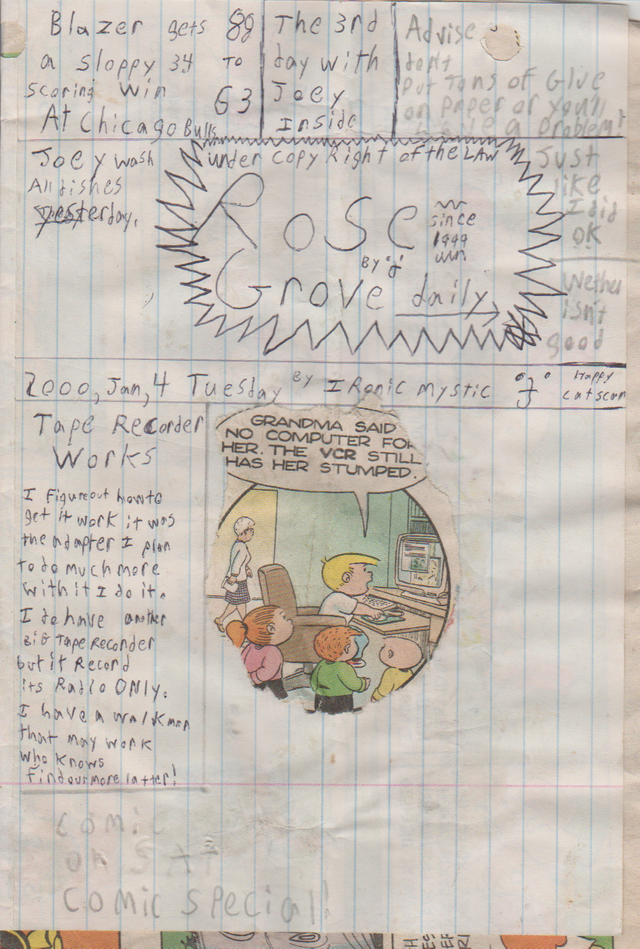 Blazer gets 89
a sloppy 34 TO
scoring win 63
At Chicago Bulls
The 3rd
day with
Joey
Inside
Advise
don't
Put Tons of Glue
on Paper or you'll
a Problem!
Just
like
I did
OK
Wether
isn't
good
Joey wash
All dishes
yesterday.
under copy Right of the LAW
Rose
since
1999
win
By "J"
Grove daily
2000, Jan, 4 Tuesday By IRonic mystic "J" Happy
catscan
Tape Recorder
Works
I Figureout howto
get it work it was
the adapter I plan
to do much more
with it I do it.
I do have another
BIG Tape Recorder
but it Record
its Radio ONLY.
I have a walkman
that may work
who knows
findourmore latter!
GRANDMA SAID
NO COMPUTER FOR
HER. THE VCR STILL
HAS HER STUMPED.
comic
on SAT
comic special!